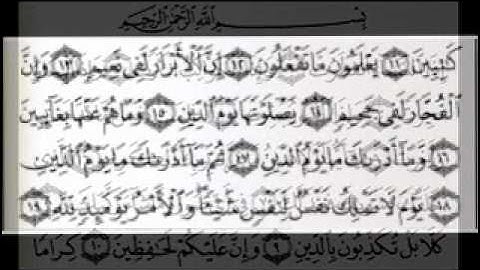 بِسْمِ ٱللَّهِ ٱلرَّحْمَٰنِ ٱلرَّحِيمِ
كَٰتِبِينَ ١١ يَعْلَمُونَ مَا تَفْعَلُونَ ١٢ إِنَّ ٱلْأَبْرَارَ لَفِى نَعِيمٍ ١٣ وَإِنَّ
ٱلْفُجَّارَ لَفِى جَحِيمٍ ١٤ يَصْلَوْنَهَا يَوْمَ ٱلدِّينِ ١٥ وَمَا هُمْ عَنْهَا بِغَآئِبِينَ
١٦ وَمَآ أَدْرَىٰكَ مَا يَوْمُ ٱلدِّينِ ١٧ ثُمَّ مَآ أَدْرَىٰكَ مَا يَوْمُ ٱلدِّينِ
١٨ يَوْمَ لَا تَمْلِكُ نَفْسٌ لِّنَفْسٍ شَيْـًٔا وَٱلْأَمْرُ يَوْمَئِذٍ لِّلَّهِ ١٩
كَلَّا بَلْ تُكَذِّبُونَ بِٱلدِّينِ ٩ وَإِنَّ عَلَيْكُمْ لَحَٰفِظِينَ ١٠ كِرَامًا